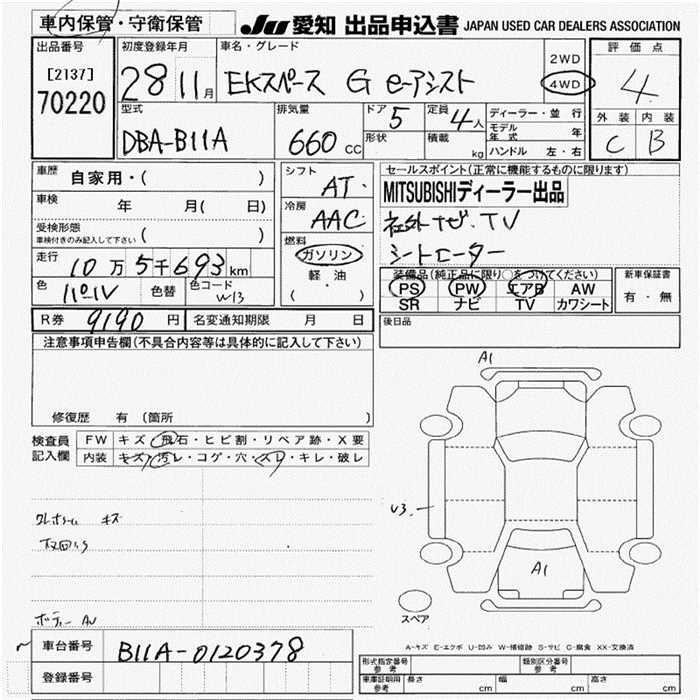 車内保管・守衛保管
JU 愛知 出品申込書 JAPAN USED CAR DEALERS ASSOCIATION
出品番号
[2137]
70220
初度登録年月
28 11月
車名・グレード
EKスペース G e-アシスト
2WD
4WD
評価点
4
外装 内装
C B
型式
DBA-B11A
排気量
660 CC
ドア
5
形状
定員
4人
積載
kg
ディーラー・並行
モデル年式 年
ハンドル 左・右
車歴
自家用・( )
車検
年 月( 日)
受検形態
車検付きのみ記入して下さい ( )
走行
10万5千693km
色
色替
色コード
W13
シフト
AT
冷房
AAC
燃料
ガソリン
軽油
( )
セールスポイント(正常に機能するものに限ります)
MITSUBISHIディーラー出品
社外ナビ.TV
シートヒーター
装備品(純正品に限り○をつけてください)
PS PW エアB AW
SR ナビ TV カワシート
新車保証書
有・無
R券 9190円
名変通知期限 月 日
後日品
注意事項申告欄(不具合内容等は具体的に記入して下さい)
修復歴 有(箇所 )
検査員記入欄
FW キズ・飛石・ヒビ割・リペア跡・X要
内装 キズ・汚レ・コゲ・穴・スレ・キレ・破レ
キズ
ボディー
A1
U3.
A1
スペア
A-キズ E-エクボ U-凹み W-補修跡 S-サビ C-腐食 XX-交換済
車台番号 B11A-0120378
登録番号
形式指定番号 参考
類別区分番号 参考
車庫証明用 参考 長さ cm 幅 cm 高さ cm